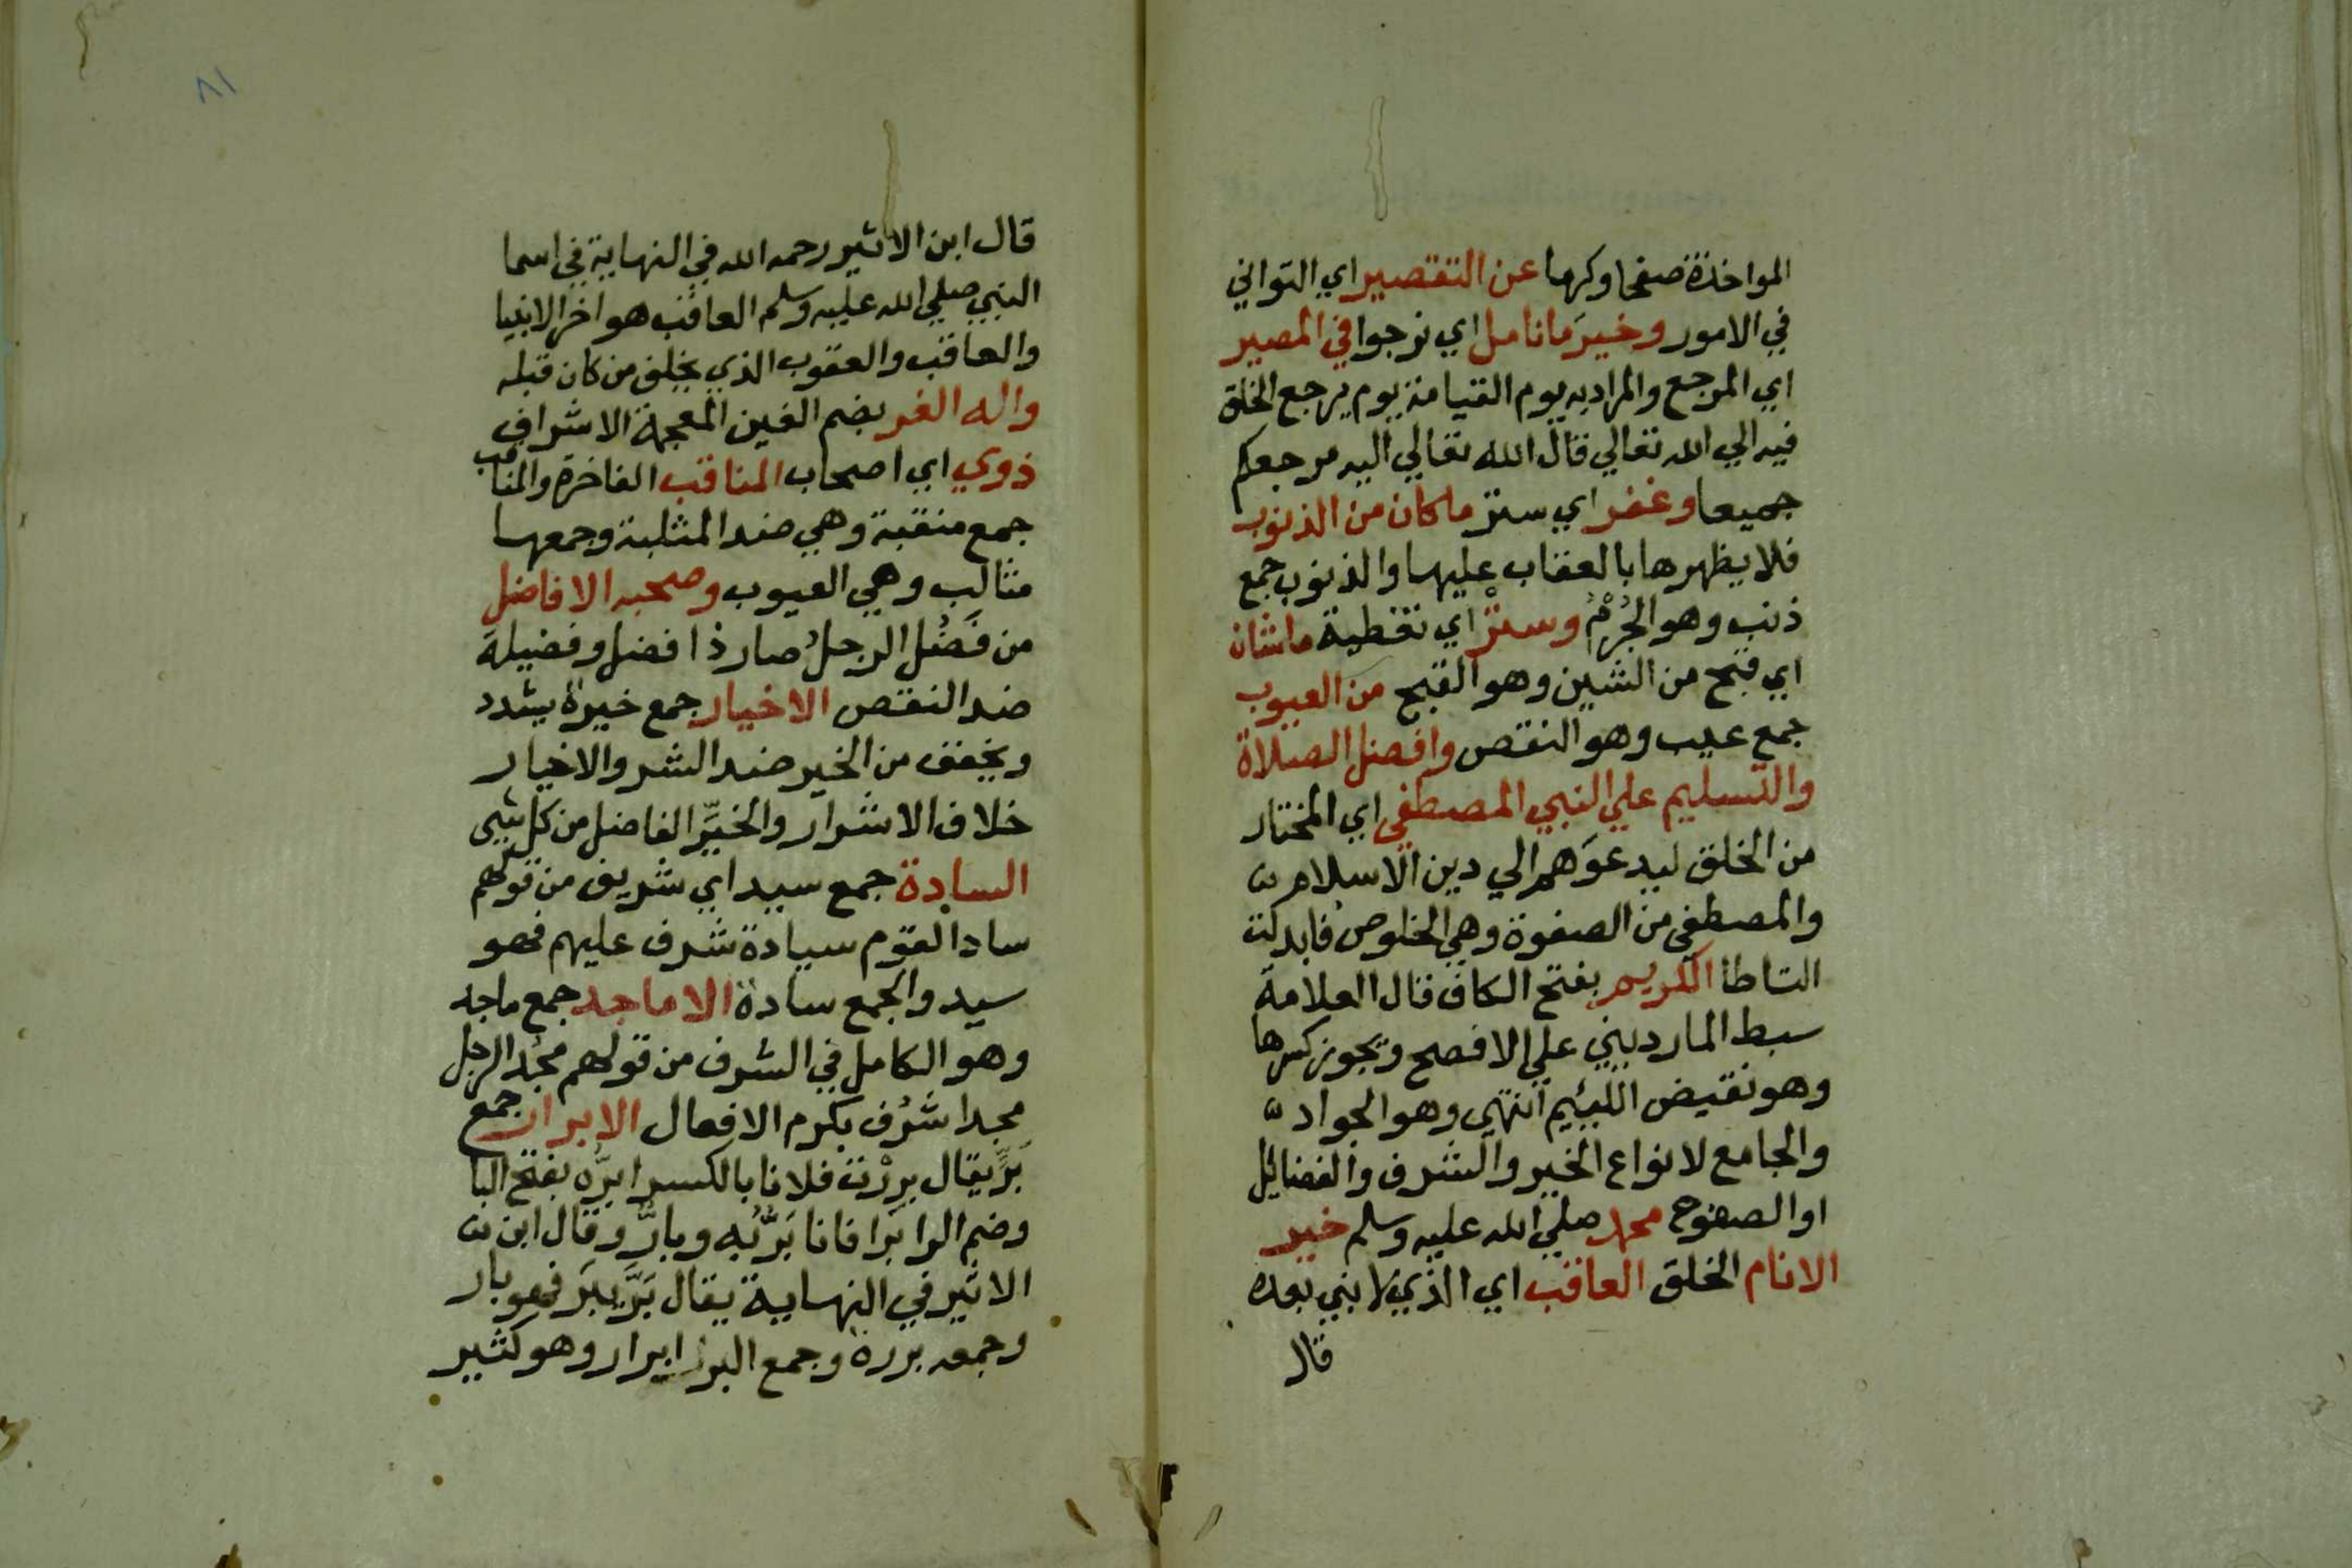 المواخذة صفحا وكرما عن التقصير اي التواني
في الامور وخير ما نامل اي نرجوا في المصير
اي المرجع والمراد به يوم القيامة يوم يرجع الخلق
فيه الي الله تعالي قال الله تعالي اليه مرجعكم
جميعا وغفر اي ستر ما كان من الذنوب
فلا يظهرها بالعقاب عليها والذنوب جمع
ذنب وهو الجُرْمُ وسترْ اي تغطية ما شان
اي قبح من الشين وهو القبح من العيوب
جمع عيب وهو النقص وافضل الصلاة
والتسليم علي النبي المصطفي اي المختار
من الخلق ليدعوَهم الي دين الاسلام
والمصطفي من الصفوة وهي الخلوص فابدلت
التا طا الكريم بفتح الكاف قال العلامة
سبط المارديني علي الافصح ويجوز كسرها
وهو نقيض اللئيم انتهي وهو الجواد
والجامع لانواع الخير والشرف والفضايل
او الصفوح محمد صلي الله عليه وسلم خير
الانام الخلق العاقب اي الذي لا نبي بعده
قال
٨١
قال ابن الاثير رحمه الله في النهاية في اسما
النبي صلي الله عليه وسلم العاقب هو اخر الانبيا
والعاقب والعقوب الذي يخلف من كان قبله
واله الغر بضم الغين المعجمة الاشراف
ذوي اي اصحاب المناقب الفاخرة والمناقب
جمع منقبة وهي ضد المثلبة وجمعها
مثالب وهي العيوب وصحبه الافاضل
من فَضُل الرجلُ صار ذا فضل وفضيلة
ضد النقص الاخيار جمع خيرة يشدد
ويخفف من الخير ضد الشر والاخيار
خلاف الاشرار والخيِّر الفاضل من كل شيي
السادة جمع سيد اي شريف من قولهم
ساد القوم سيادة شرف عليهم فهو
سيد والجمع سادة الاماجد جمع ماجد
وهو الكامل في الشرف من قولهم مجُد الرجل
مجدا شَرُف بكرم الافعال الابرار جمع
بَرٍّ يقال برِرْت فلانا بالكسر ابرُّه بفتح البا
وضم الرا بَرا فانا بَرٌّ به وبارٌّ وقال ابن
الاثير في النهاية يقال بَرَّ يبَر فهو بار
وجمعه بررة وجمع البر ابرار وهو كثير